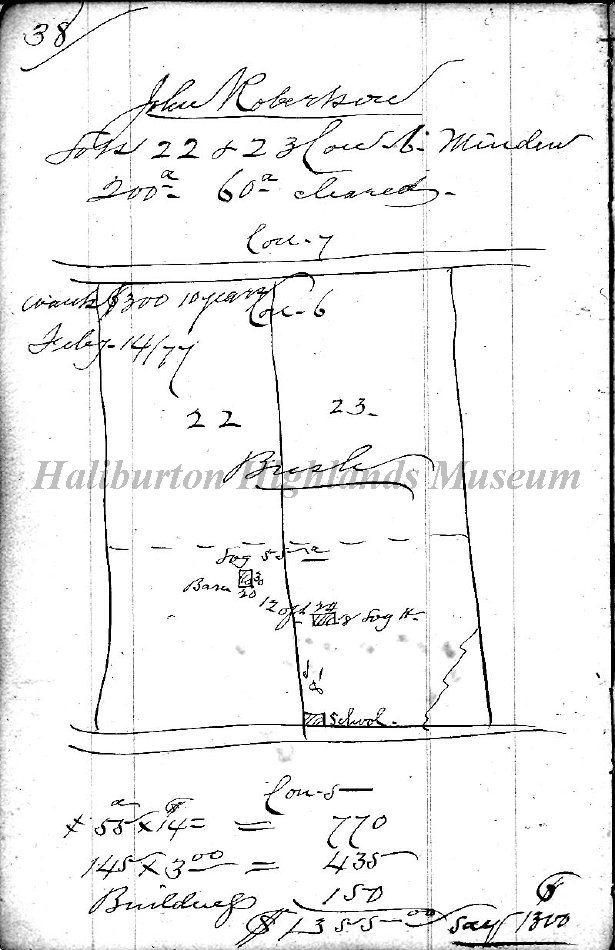 38
John Robertson
Lots 22 & 23 Con. 6. Minden
200a 60a cleared.
Con. 7
wants $300 10 years
Con. 6
Feby. 14/77
22 23.
Bush
Haliburton Highlands Museum
Say 55 a
Barn 20 30
12 ft 24 18 Log H.
School.
Con. 5
x 55a x $14 = 770
145 x 3 00 = 435
Buildings 150
$1355 00 Say $1300